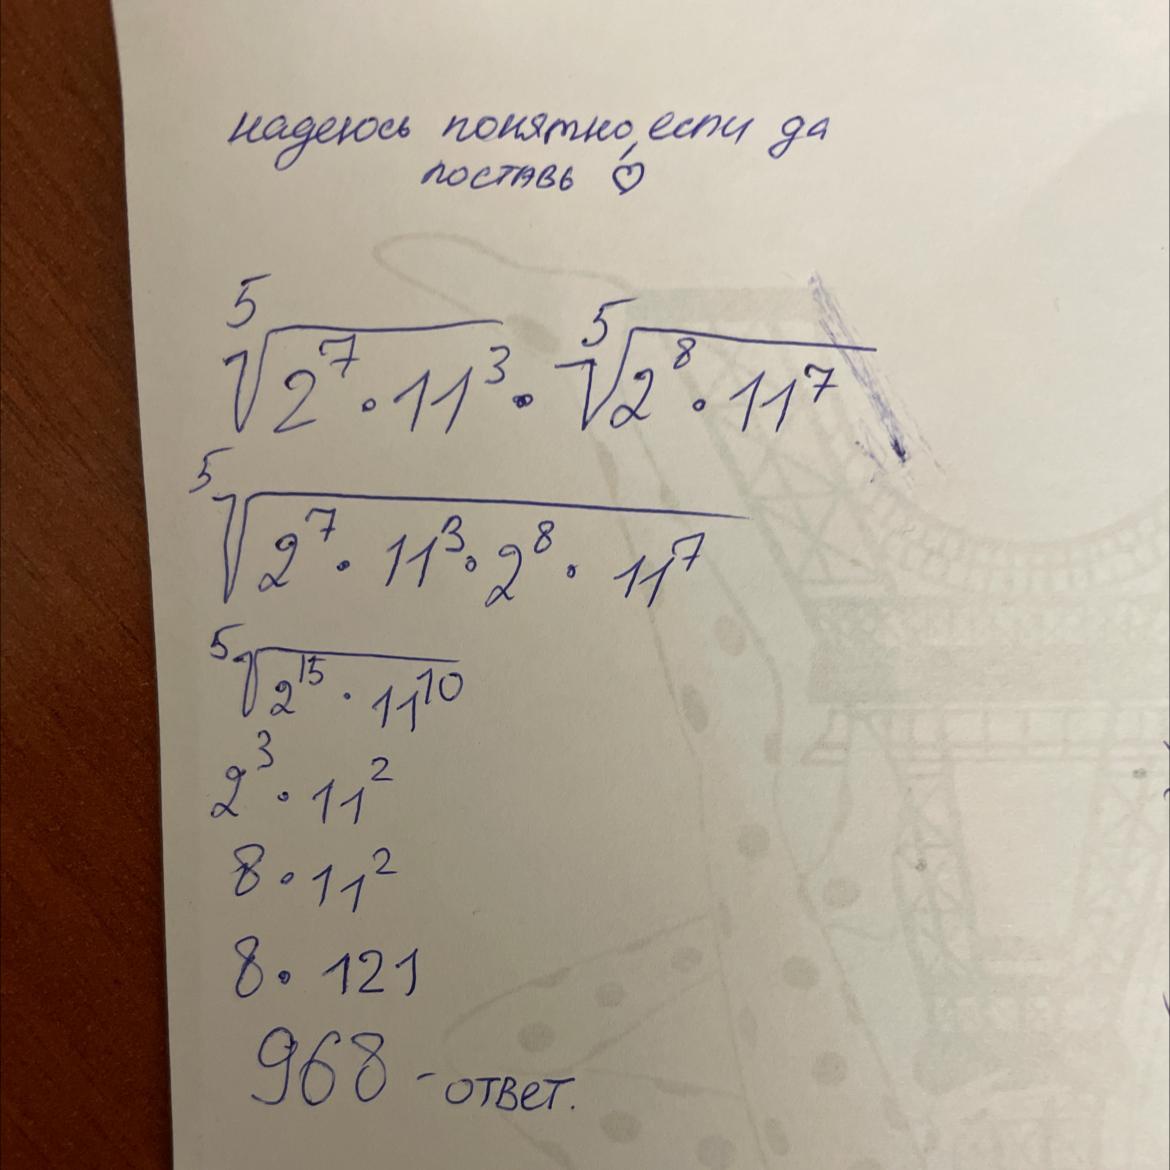 надеюсь понятно, если да
поставь ♡
⁵√(2⁷ · 11³) · ⁵√(2⁸ · 11⁷)
⁵√(2⁷ · 11³ · 2⁸ · 11⁷)
⁵√(2¹⁵ · 11¹⁰)
2³ · 11²
8 · 11²
8 · 121
968 - ответ.